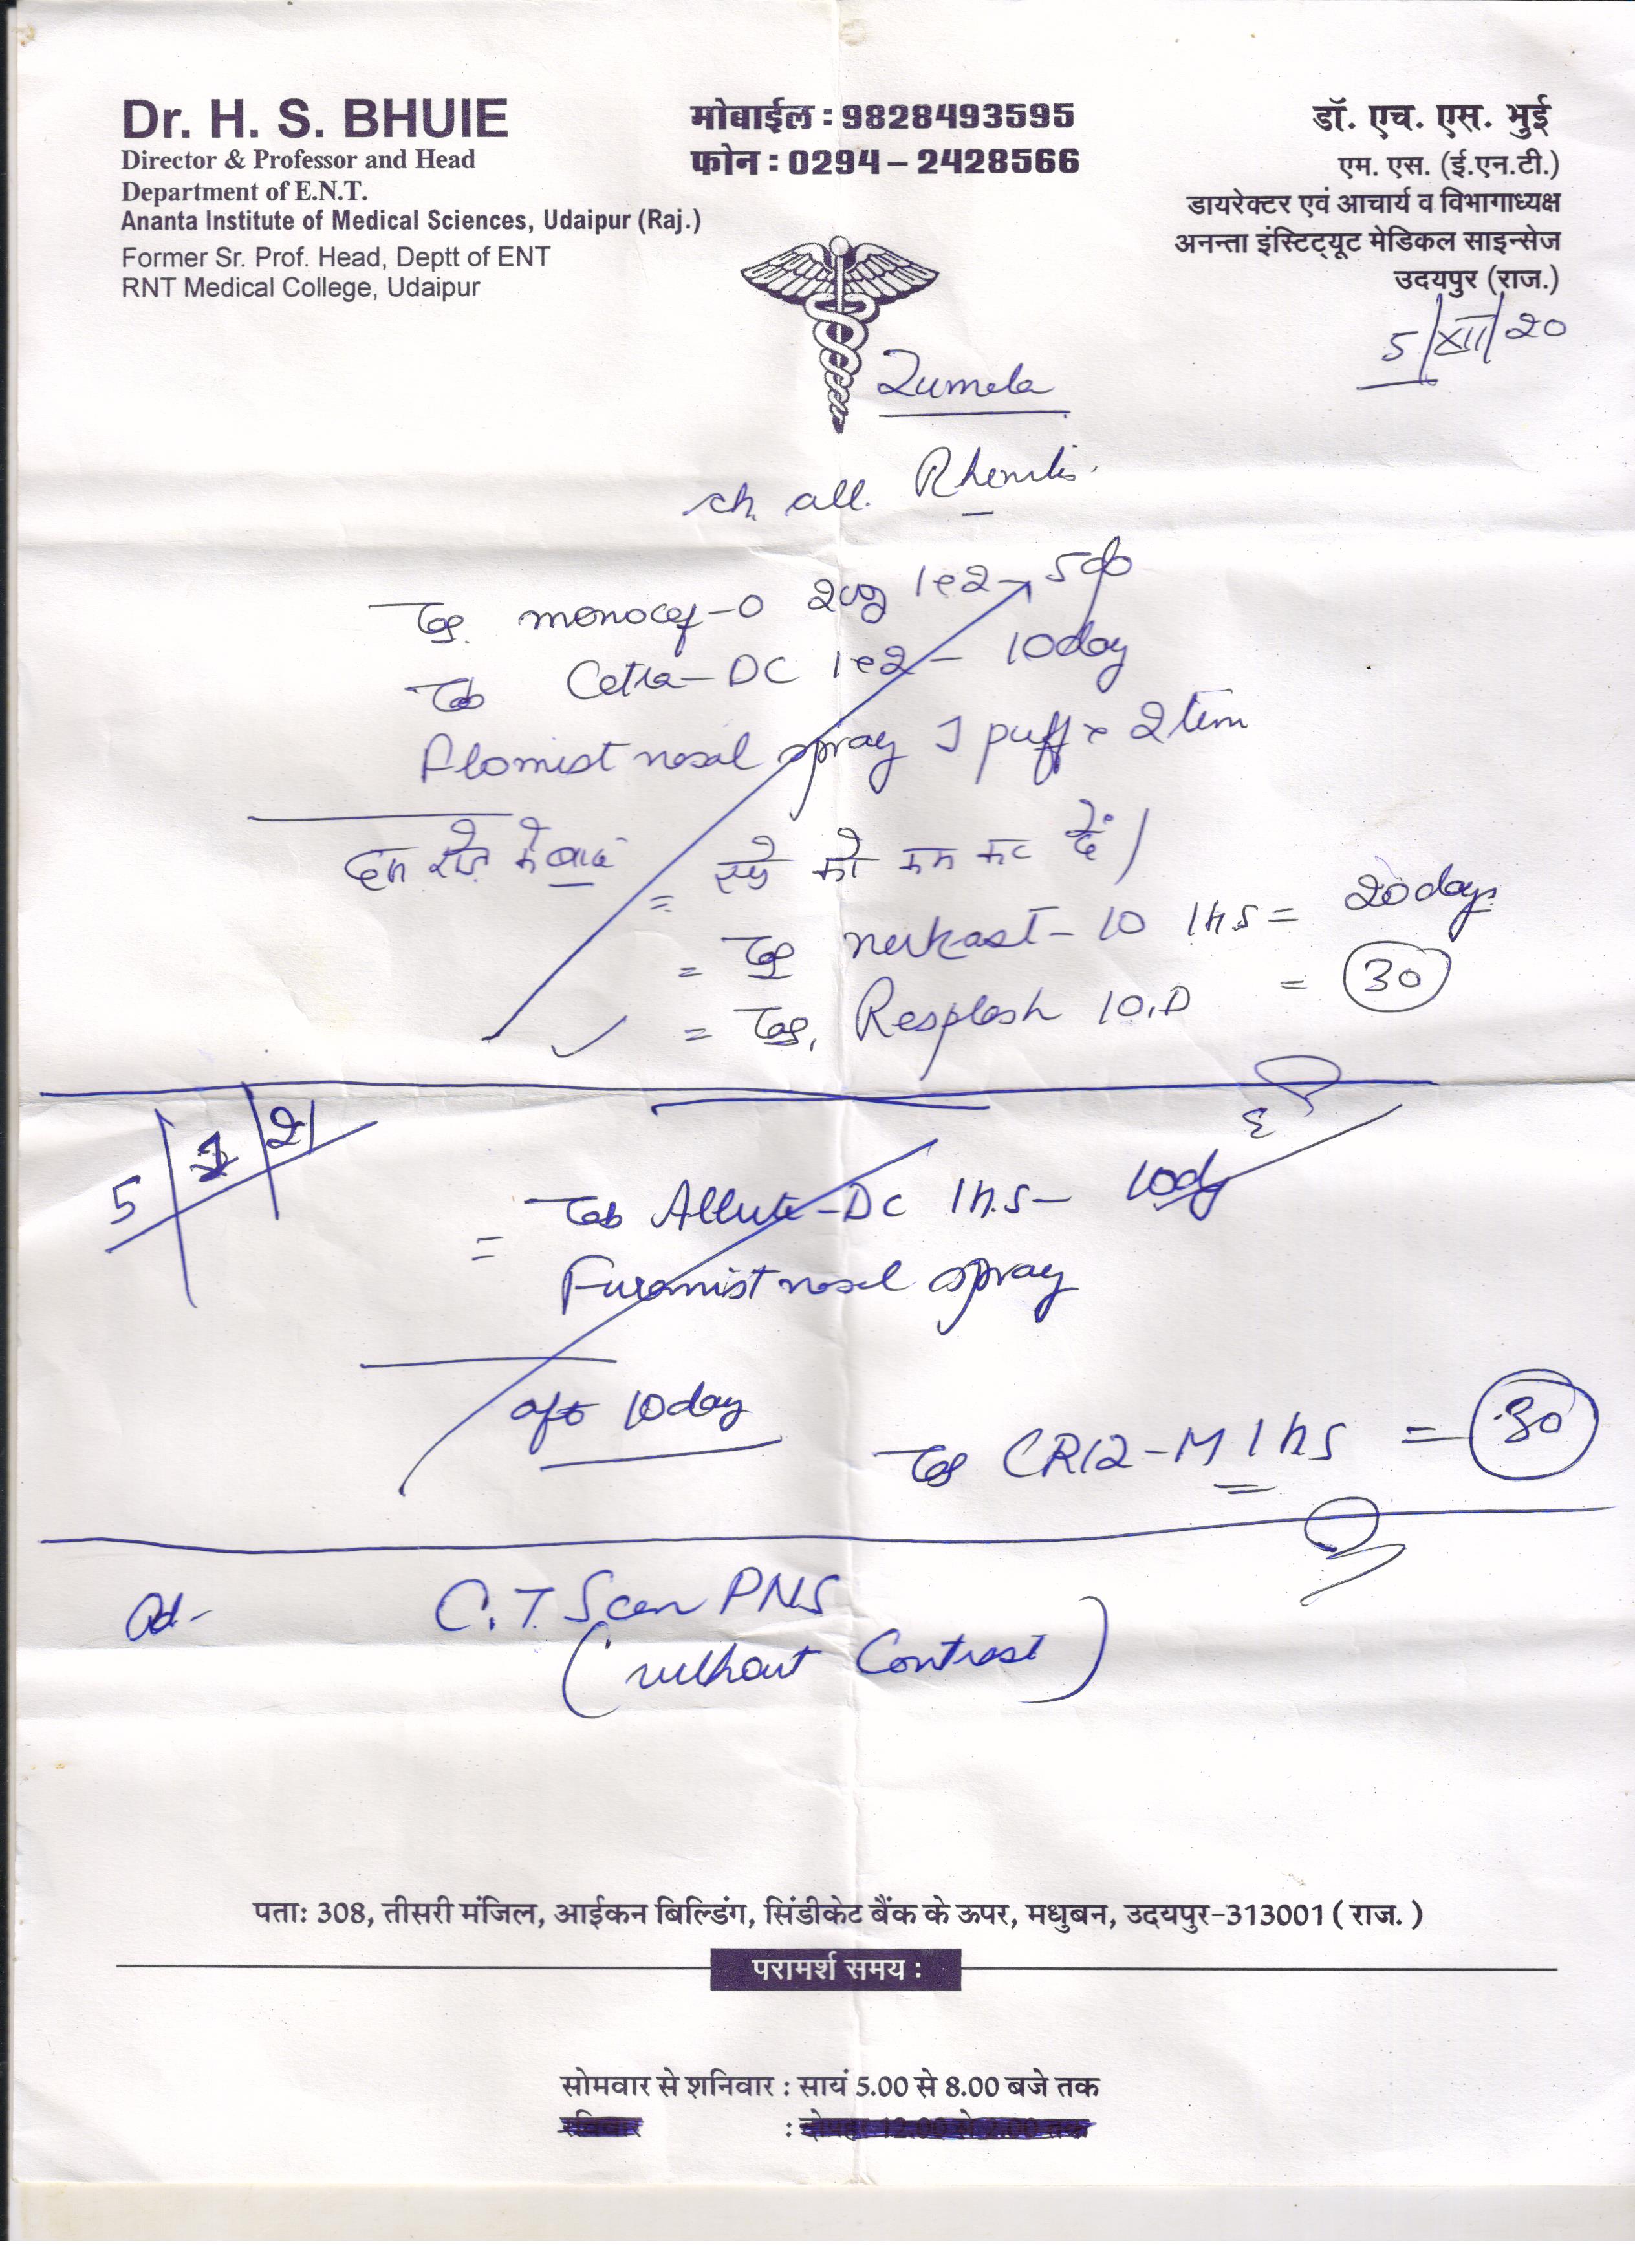 Dr. H. S. BHUIE
Director & Professor and Head
Department of E.N.T.
Ananta Institute of Medical Sciences, Udaipur (Raj.)
Former Sr. Prof. Head, Deptt of ENT
RNT Medical College, Udaipur
मोबाईल : 9828493595
फोन : 0294 – 2428566
डॉ. एच. एस. भुई
एम. एस. (ई.एन.टी.)
डायरेक्टर एवं आचार्य व विभागाध्यक्ष
अनन्ता इंस्टिट्यूट मेडिकल साइन्सेज
उदयपुर (राज.)
5/XII/20
ch all.
Tab. monocef-O 1e2
Tab Cetra-DC 1e2 – 10day
nasal spray puff x 2 tim
के बाद = स्प्रे को कम कर दें।
= Tab - 10 1hs = 20days
= Tab. 1O.D = 30
5 21
= Tab DC 1h.s – 10dy
Furomist nasal spray
aft 10day
Tab CR12-M 1hs = 30
Ad.- C.T. Scan PNS
(without Contrast)
पता: 308, तीसरी मंजिल, आईकन बिल्डिंग, सिंडीकेट बैंक के ऊपर, मधुबन, उदयपुर-313001 ( राज. )
परामर्श समय :
सोमवार से शनिवार : सायं 5.00 से 8.00 बजे तक